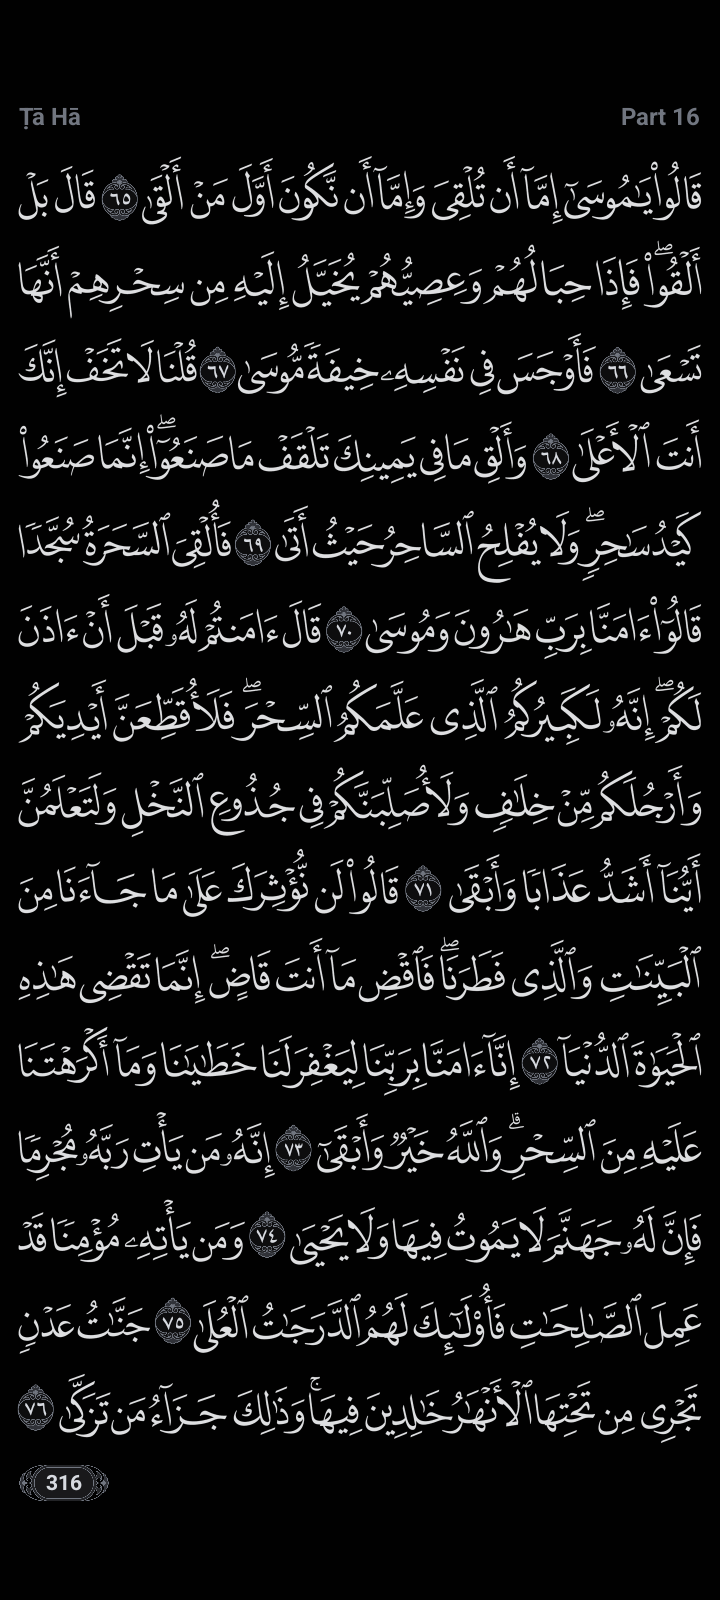 Ṭā Hā Part 16
قَالُوا۟ يَـٰمُوسَىٰٓ إِمَّآ أَن تُلْقِىَ وَإِمَّآ أَن نَّكُونَ أَوَّلَ مَنْ أَلْقَىٰ ٦٥ قَالَ بَلْ
أَلْقُوا۟ ۖ فَإِذَا حِبَالُهُمْ وَعِصِيُّهُمْ يُخَيَّلُ إِلَيْهِ مِن سِحْرِهِمْ أَنَّهَا
تَسْعَىٰ ٦٦ فَأَوْجَسَ فِى نَفْسِهِۦ خِيفَةً مُّوسَىٰ ٦٧ قُلْنَا لَا تَخَفْ إِنَّكَ
أَنتَ ٱلْأَعْلَىٰ ٦٨ وَأَلْقِ مَا فِى يَمِينِكَ تَلْقَفْ مَا صَنَعُوٓا۟ ۖ إِنَّمَا صَنَعُوا۟
كَيْدُ سَـٰحِرٍ ۖ وَلَا يُفْلِحُ ٱلسَّاحِرُ حَيْثُ أَتَىٰ ٦٩ فَأُلْقِىَ ٱلسَّحَرَةُ سُجَّدًا
قَالُوٓا۟ ءَامَنَّا بِرَبِّ هَـٰرُونَ وَمُوسَىٰ ٧٠ قَالَ ءَامَنتُمْ لَهُۥ قَبْلَ أَنْ ءَاذَنَ
لَكُمْ ۖ إِنَّهُۥ لَكَبِيرُكُمُ ٱلَّذِى عَلَّمَكُمُ ٱلسِّحْرَ ۖ فَلَأُقَطِّعَنَّ أَيْدِيَكُمْ
وَأَرْجُلَكُم مِّنْ خِلَـٰفٍ وَلَأُصَلِّبَنَّكُمْ فِى جُذُوعِ ٱلنَّخْلِ وَلَتَعْلَمُنَّ
أَيُّنَآ أَشَدُّ عَذَابًا وَأَبْقَىٰ ٧١ قَالُوا۟ لَن نُّؤْثِرَكَ عَلَىٰ مَا جَآءَنَا مِنَ
ٱلْبَيِّنَـٰتِ وَٱلَّذِى فَطَرَنَا ۖ فَٱقْضِ مَآ أَنتَ قَاضٍ ۖ إِنَّمَا تَقْضِى هَـٰذِهِ
ٱلْحَيَوٰةَ ٱلدُّنْيَآ ٧٢ إِنَّآ ءَامَنَّا بِرَبِّنَا لِيَغْفِرَ لَنَا خَطَـٰيَـٰنَا وَمَآ أَكْرَهْتَنَا
عَلَيْهِ مِنَ ٱلسِّحْرِ ۗ وَٱللَّهُ خَيْرٌ وَأَبْقَىٰٓ ٧٣ إِنَّهُۥ مَن يَأْتِ رَبَّهُۥ مُجْرِمًا
فَإِنَّ لَهُۥ جَهَنَّمَ لَا يَمُوتُ فِيهَا وَلَا يَحْيَىٰ ٧٤ وَمَن يَأْتِهِۦ مُؤْمِنًا قَدْ
عَمِلَ ٱلصَّـٰلِحَـٰتِ فَأُو۟لَـٰٓئِكَ لَهُمُ ٱلدَّرَجَـٰتُ ٱلْعُلَىٰ ٧٥ جَنَّـٰتُ عَدْنٍ
تَجْرِى مِن تَحْتِهَا ٱلْأَنْهَـٰرُ خَـٰلِدِينَ فِيهَا ۚ وَذَٰلِكَ جَزَآءُ مَن تَزَكَّىٰ ٧٦
316